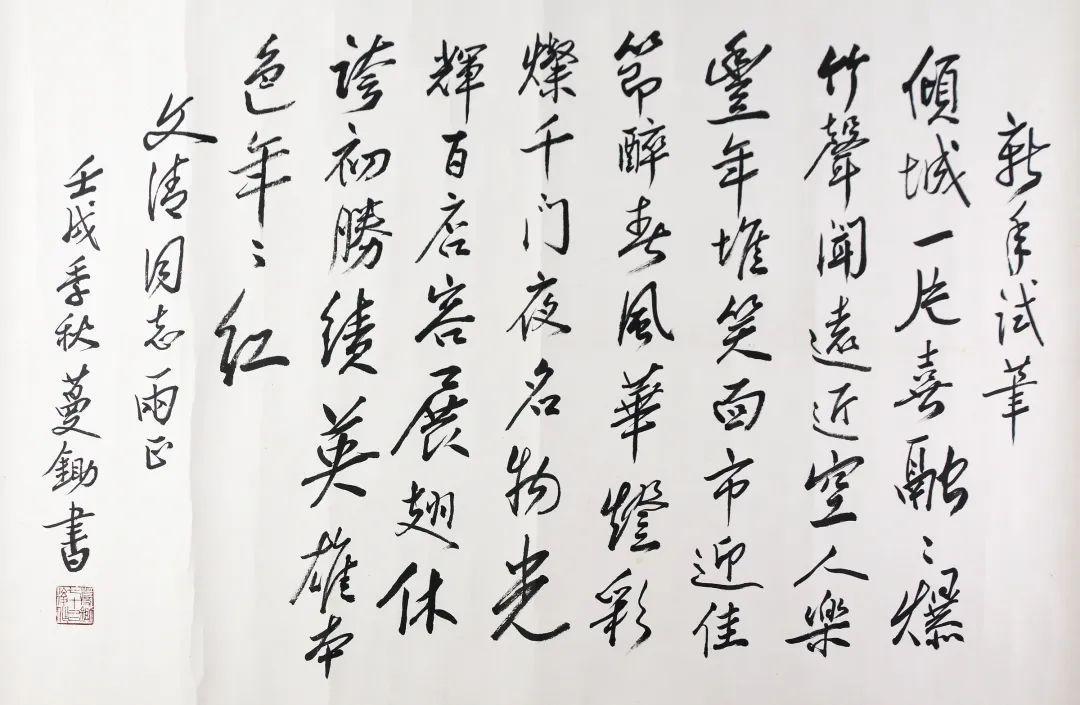 新年试笔
傾城一片喜融〻爆
竹聲聞遠近空人樂
豐年堆笑面市迎佳
節醉春風華燈彩
燦千门夜名物光
輝百店容展翅休
誇初勝績英雄本
色年〻红
文清同志雨正
壬戌季秋蔓鋤書